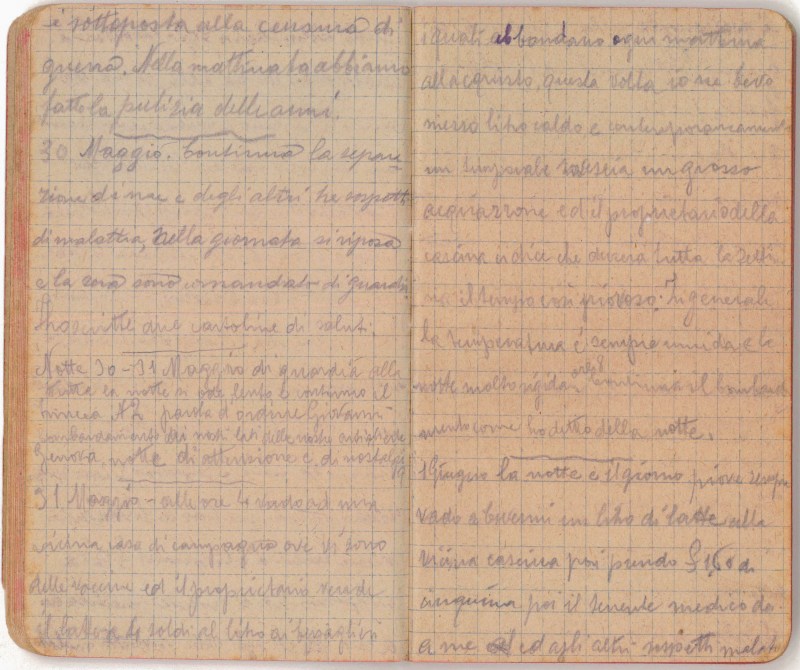 è sottoposta alla censura di
guerra. Nella mattinata abbiamo
fatto la pulizia delle armi.
30 Maggio. Continua la separa-
zione di me e degli altri tre sospetti
di malattia, nella giornata si riposa
e la sera sono comandato di guardia
Ho scritte due cartoline di saluti.
Notte 30-31 Maggio di guardia alla
tutta la notte si ode lento e continuo il
trincea N2 parola d'ordine Giovanni
bombardamento dai nostri lati delle nostre artiglierie
Genova. notte di attenzione e di nostalgia
31 Maggio - alle ore 4 vado ad una
vicina casa di campagna ove vi sono
delle vaccine ed il proprietario vende
il latte a 4 soldi al litro ai bersaglieri
i quali abbondano ogni mattina
all'acquisto, questa volta io ne bevo
mezzo litro caldo e contemporaneamente
un temporale rovescia un grosso
acquazzone ed il proprietario della
cascina ci dice che durerà tutta la setti
il tempo così piovoso. In generale
la temperatura è sempre umida e la
notte molto rigida. ore 8 Continua il bombard
mento come ho detto della notte.
1 Giugno la notte e il giorno piove sempre
vado a bevermi un litro di latte alla
vicina cascina poi prendo £ 1,60 di
cinquina poi il tenente medico da
a me ed agli altri sospetti malati